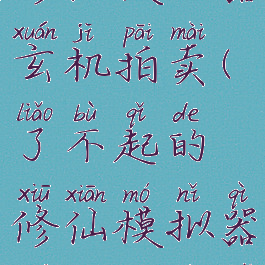 xuán jī pāi mài
玄机拍卖(
liǎo bù qǐ de
了不起的
xiū xiān mó nǐ qì
修仙模拟器